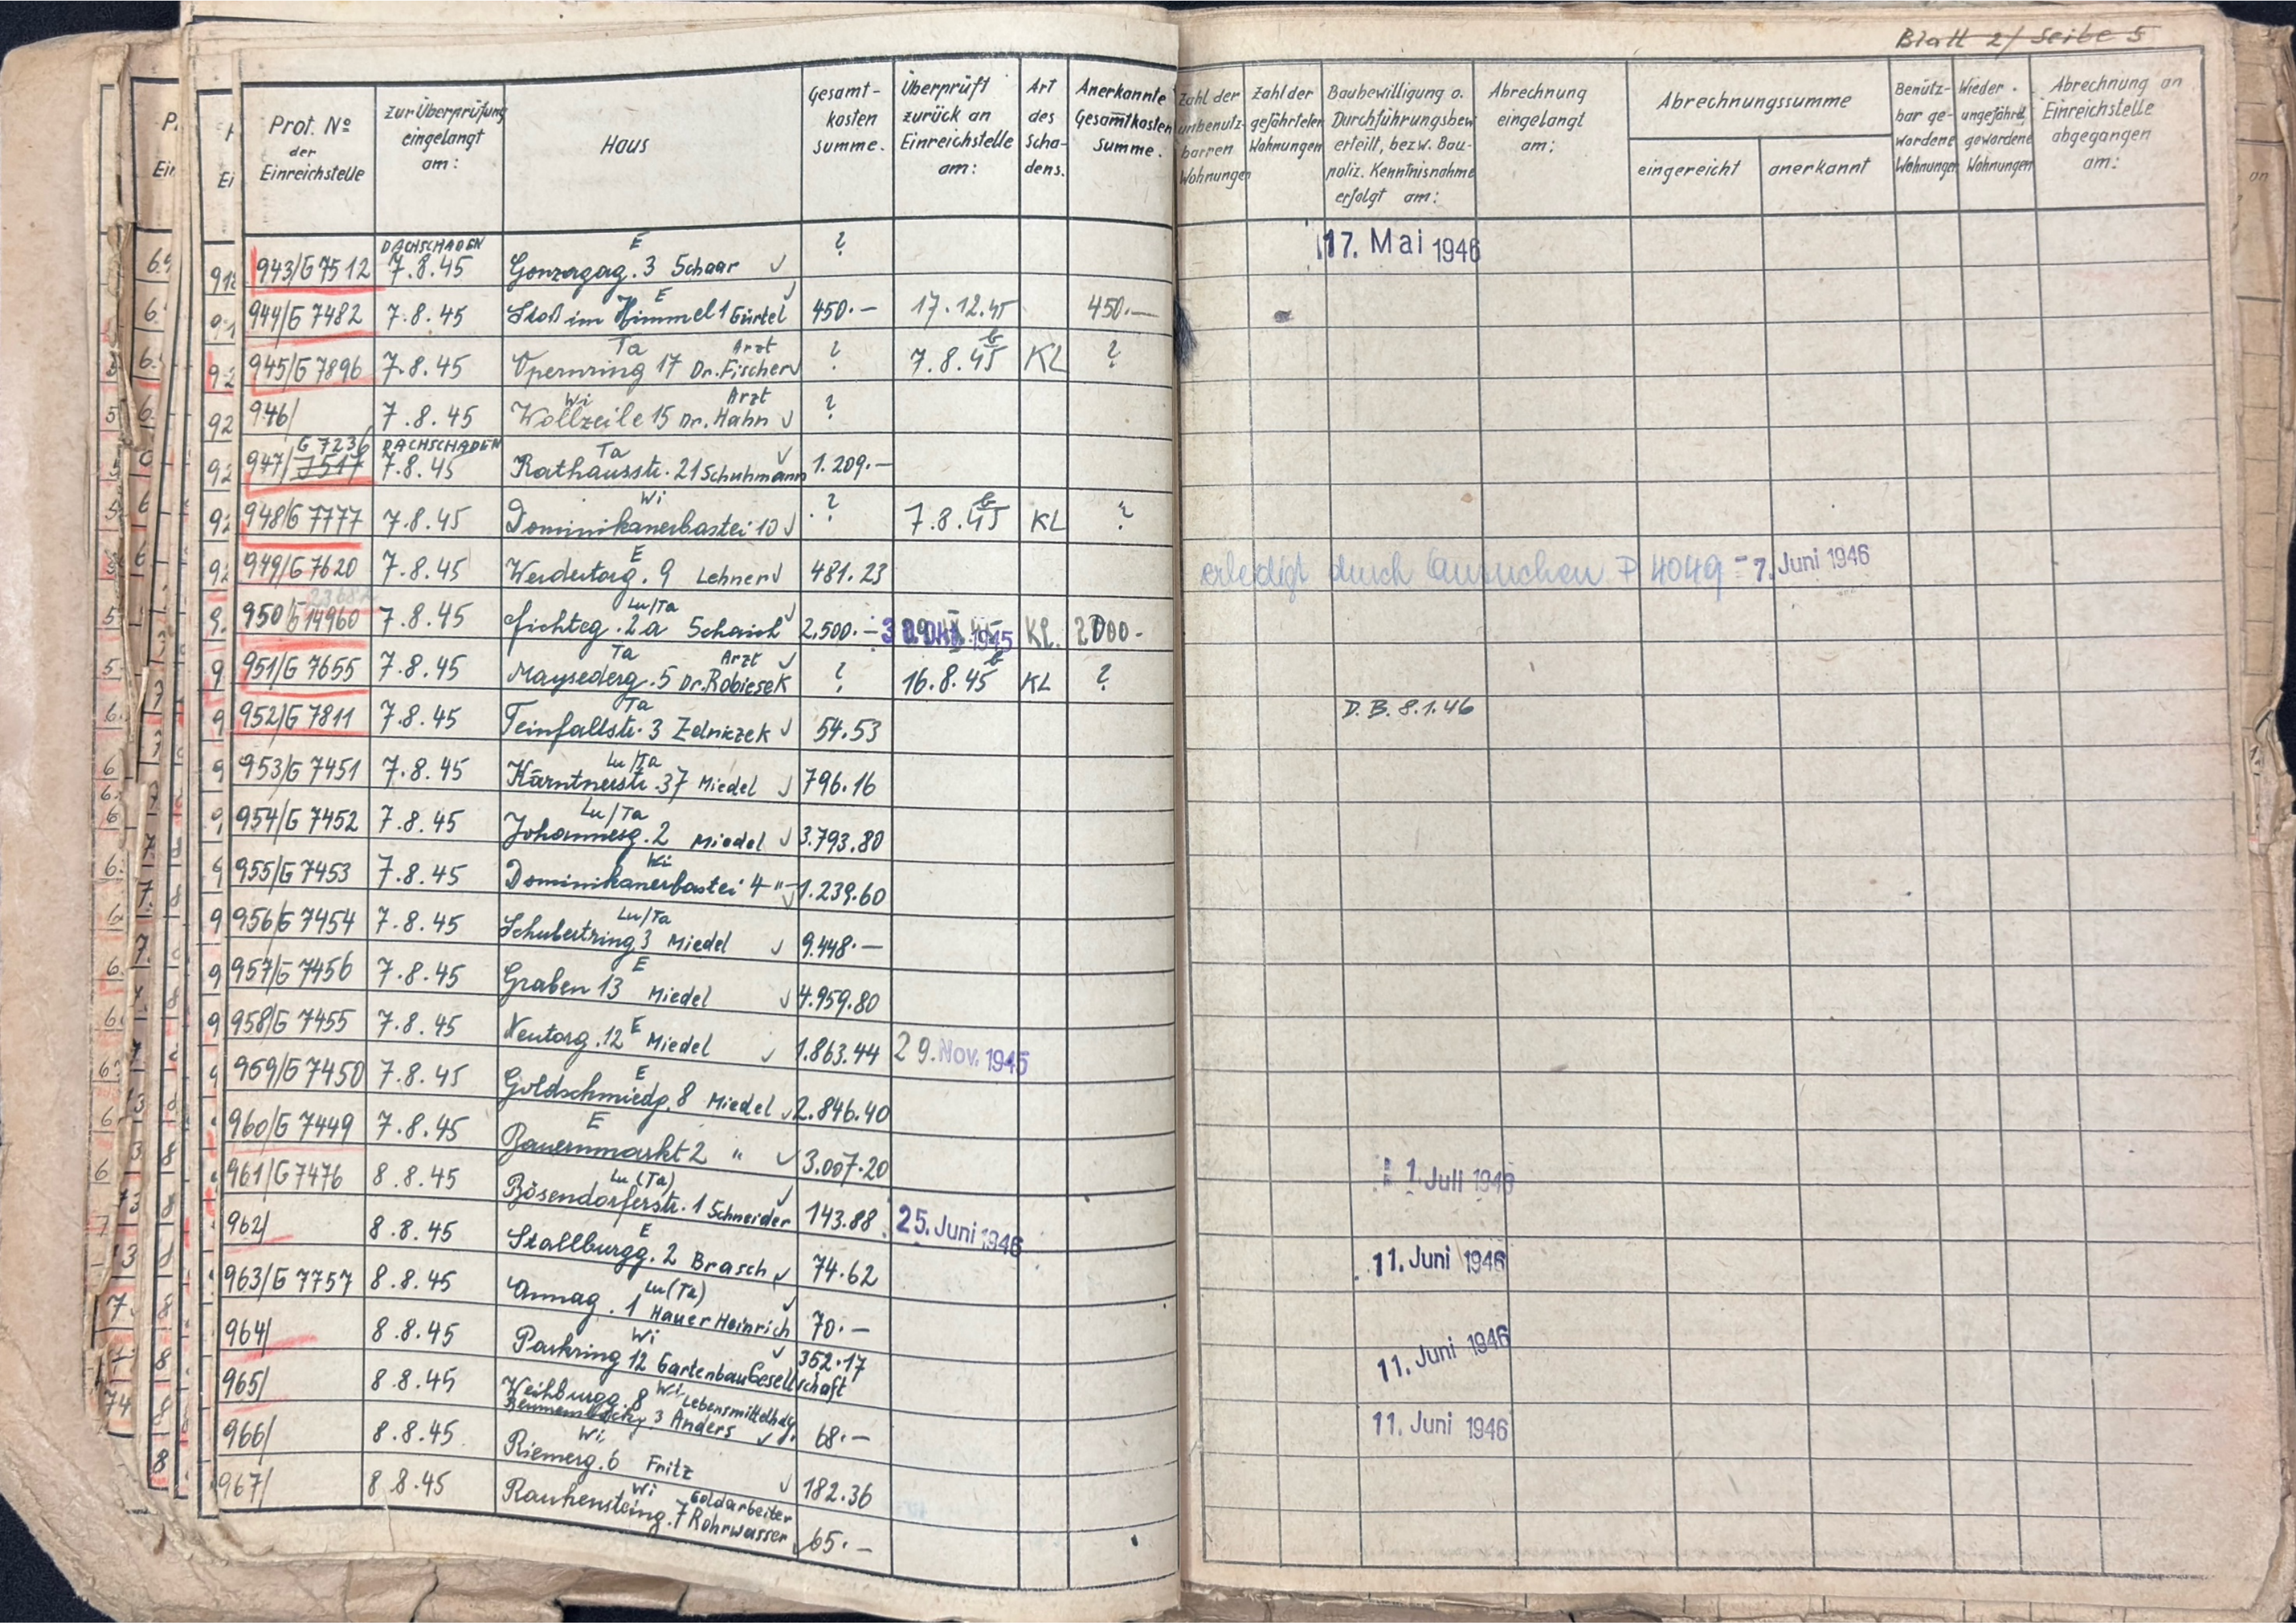 Blatt 2/ Seite 5
Prot. No der Einreichstelle | Zur Überprüfung eingelangt am: | Haus | Gesamt-kosten summe. | Überprüft zurück an Einreichstelle am: | Art des Scha-dens. | Anerkannte Gesamtkosten Summe. | Zahl der unbenutz-barren Wohnungen | Zahl der gefährteten Wohnungen | Baubewilligung o. Durchführungsbew. erteilt, bezw. Bau-poliz. Kenntnisnahme erfolgt am: | Abrechnung eingelangt am: | Abrechnungssumme eingereicht | anerkannt | Benütz-bar ge-wordene Wohnungen | Wieder. ungefährd. gewordene Wohnungen | Abrechnung an Einreichstelle abgegangen am:
943/G 7512 | DACHSCHADEN 7.8.45 | Gonzagag. 3 Schaar E ✓ | ? | 17. Mai 1946
944/G 7482 | 7.8.45 | Stoß im Himmel 1 Gürtel E ✓ | 450.— | 17.12.45 | 450.—
945/G 7896 | 7.8.45 | Opernring 17 Dr. Fischer Ta Arzt ✓ | ? | 7.8.45 | KL | ?
946/ | 7.8.45 | Wollzeile 15 Dr. Hahn Wi Arzt ✓ | ?
947/ G 7236 7517 | DACHSCHADEN 7.8.45 | Rathausstr. 21 Schuhmann Ta ✓ | 1.209.—
948/G 7777 | 7.8.45 | Dominikanerbastei 10 Wi ✓ | ? | 7.8.45 | KL | ?
949/G 7620 | 7.8.45 | Werdertorg. 9 Lehner E ✓ | 481.23 | erledigt durch Ansuchen P 4049 - 7. Juni 1946
950/G 14960 | 7.8.45 | Fichteg. 2a Schaich Lu/Ta ✓ | 2.500.— | 1945 | Kl. | 2000-
951/G 7655 | 7.8.45 | Maysederg. 5 Dr. Robicsek Ta Arzt ✓ | ? | 16.8.45 | KL | ?
952/G 7811 | 7.8.45 | Teinfaltstr. 3 Zelniczek Ta ✓ | 54.53 | D.B. 8.1.46
953/G 7451 | 7.8.45 | Kärntnerstr. 37 Miedel Lu/Ta ✓ | 796.16
954/G 7452 | 7.8.45 | Johannesg. 2 Miedel Lu/Ta ✓ | 3.793.80
955/G 7453 | 7.8.45 | Dominikanerbastei 4 " Wi ✓ | 1.239.60
956/G 7454 | 7.8.45 | Schubertring 3 Miedel Lu/Ta ✓ | 9.448.—
957/G 7456 | 7.8.45 | Graben 13 Miedel E ✓ | 4.959.80
958/G 7455 | 7.8.45 | Neutorg. 12 Miedel E ✓ | 1.863.44 | 29. Nov. 1945
959/G 7450 | 7.8.45 | Goldschmiedg. 8 Miedel E ✓ | 2.846.40
960/G 7449 | 7.8.45 | Bauernmarkt 2 " E ✓ | 3.007.20
961/G 7476 | 8.8.45 | Bösendorferstr. 1 Schneider Lu (Ta) ✓ | 143.88 | 25. Juni 1946 | 1. Juli 1946
962/ | 8.8.45 | Stallburgg. 2 Brasch E ✓ | 74.62 | 11. Juni 1946
963/G 7757 | 8.8.45 | Annag. 1 Hauer Heinrich Lu (Ta) ✓ | 70.—
964/ | 8.8.45 | Parkring 12 Gartenbau Gesellschaft Wi ✓ | 352.17 | 11. Juni 1946
965/ | 8.8.45 | Weihburgg. 8 3 Anders Wi Lebensmittelhdg. ✓ | 68.— | 11. Juni 1946
966/ | 8.8.45 | Riemerg. 6 Fritz Wi ✓ | 182.36
967/ | 8.8.45 | Rauhensteing. 7 Rohrwasser Wi Goldarbeiter ✓ | 65.—